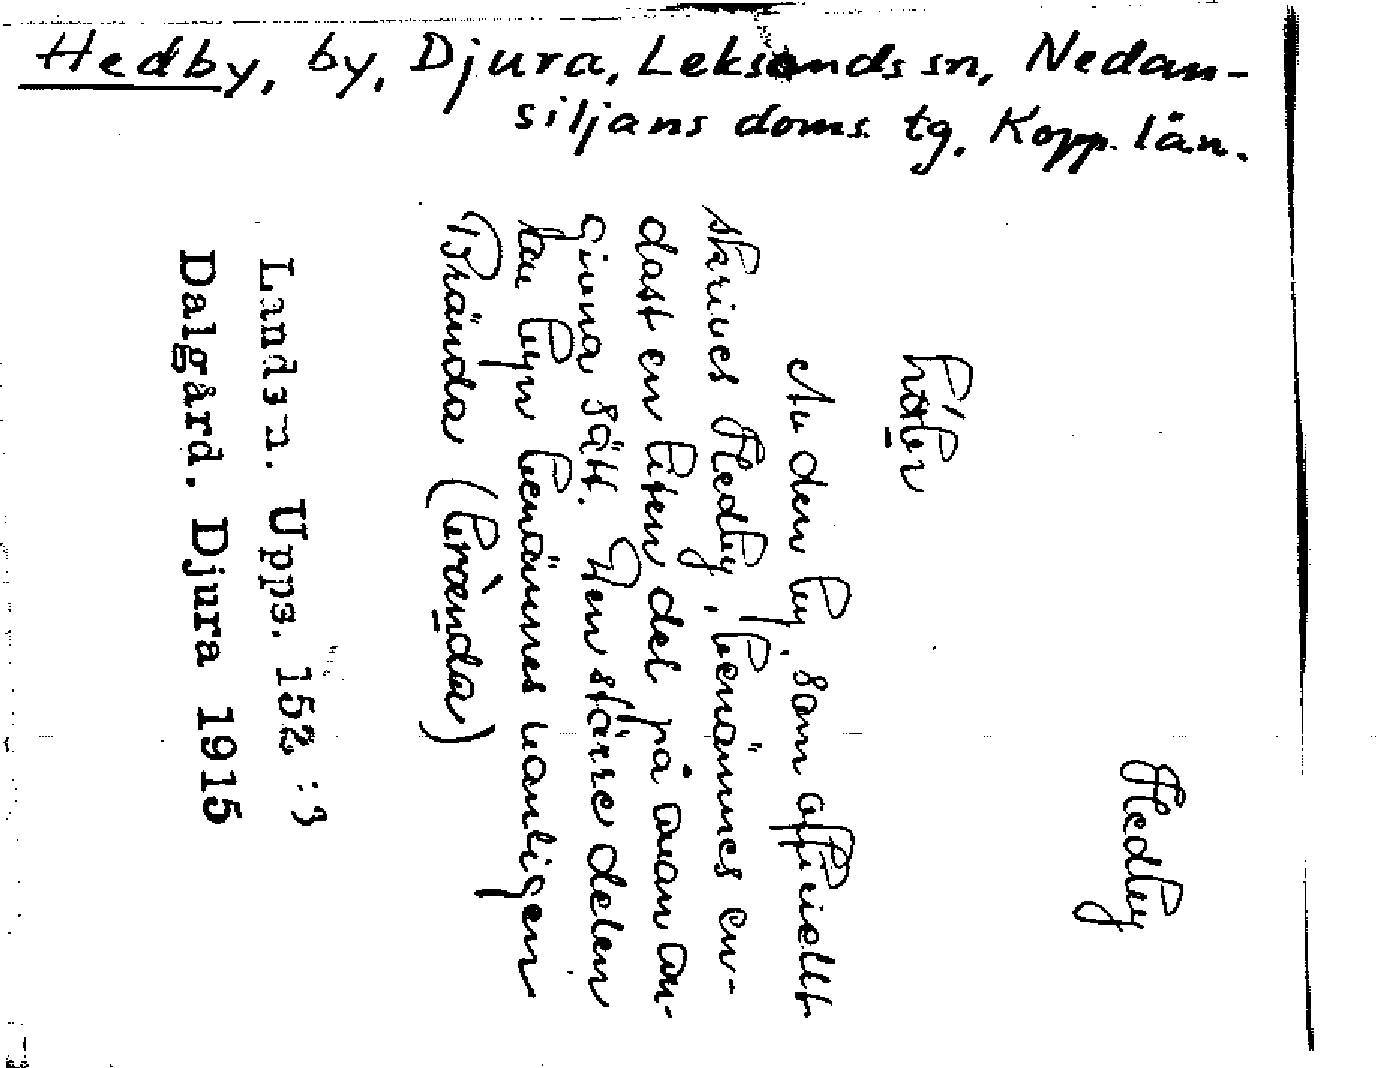 Hedby, by, Djura, Leksands sn, Nedan-
siljans doms. tg, Kopp. län.
Hedby
Av den by, som officiellt
skrives Hedby, benämnes en-
dast en liten del på ovan an-
givna sätt. Den större delen
av byn benämnes vanligen
Brända (brænda)
Landsm. Upps. 152:3
Dalgård. Djura 1915